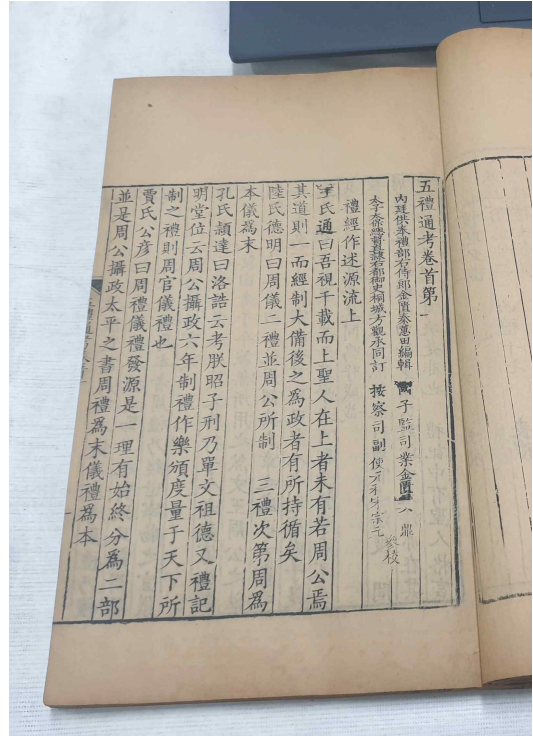 五禮通考卷首第一
內廷供奉禮部右侍郎金匱秦蕙田編輯
太子太保總督直隸右都御史桐城方觀承同訂
子監司業金匱
鼎
按察司副使元和宋宗元
參校
禮經作述源流上
王氏通曰吾視千載而上聖人在上者未有若周公焉
其道則一而經制大備後之爲政者有所持循矣
陸氏德明曰周儀二禮並周公所制 三禮次第周爲
本儀爲末
孔氏頴達曰洛誥云考朕昭子刑乃單文祖德又禮記
明堂位云周公攝政六年制禮作樂頒度量于天下所
制之禮則周官儀禮也
賈氏公彥曰周禮儀禮發源是一理有始終分爲二部
並是周公攝政太平之書周禮爲末儀禮爲本